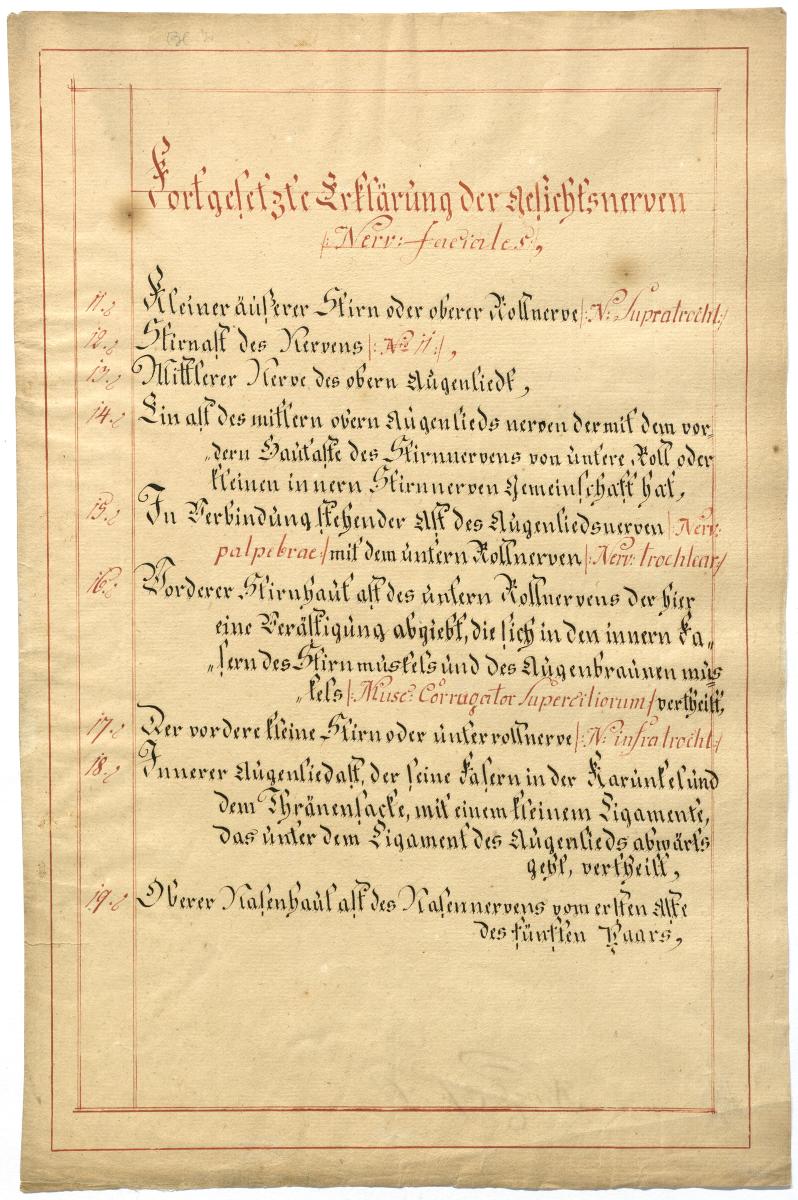 Fortgesetzte Erklärung der Gesichtsnerven
/: Nerv: faciales,
11. Kleiner äußerer Stirn oder oberer Rollnerve /: N: Supratrochl :/
12. Stirnast des Nervens /: No 11 :/,
13. Mittlerer Nerve des obern Augenlieds,
14. Ein ast des mittern obern Augenlieds nerven der mit dem vor-
„dern Hautaste des Stirnnervens von untere Roll oder
kleinen innern Stirnnerven Gemeinschaft hat,
15. In Verbindung stehender Ast des Augenliedsnerven /: Nerv:
palpebrae :/ mit dem untern Rollnerven /: Nerv: trochlear :/
16. Vorderer Stirnhaut ast des untern Rollnervens der hier
eine Verästigung abgiebt, die sich in den innern Fa„
„sern des Stirnmuskels und des Augenbraunen mus
„kels /: Musc: Corrugator Superciliorum :/ vertheilt,
17. Der vordere kleine Stirn oder unterrollnerve /: N: infratrochl :/
18. Innerer Augenliedast, der seine Fasern in der Karunkel und
dem Thränensacke, mit einem kleinem Ligamente,
das unter dem Ligament des Augenlieds abwärts
geht, vertheilt,
19. Oberer Nasenhaut ast des Nasennervens vom ersten Aste
des fünften Paars,